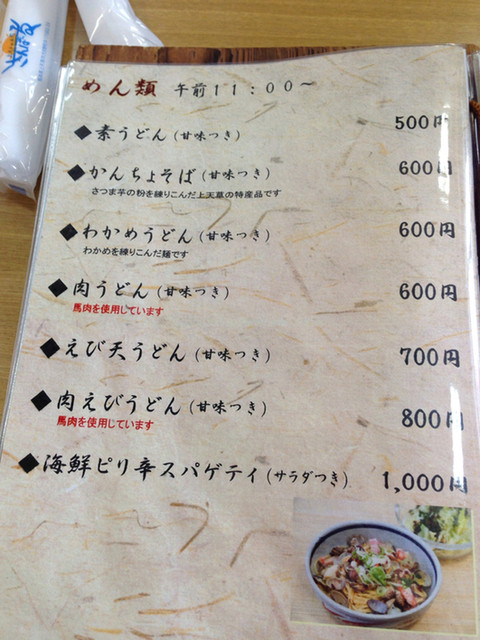 めん類 午前11:00～
◆素うどん(甘味つき) 500円
◆かんちょそば(甘味つき) 600円
さつま芋の粉を練りこんだ上天草の特産品です
◆わかめうどん(甘味つき) 600円
わかめを練りこんだ麺です
◆肉うどん(甘味つき) 600円
馬肉を使用しています
◆えび天うどん(甘味つき) 700円
◆肉えびうどん(甘味つき) 800円
馬肉を使用しています
◆海鮮ピリ辛スパゲティ(サラダつき) 1,000円